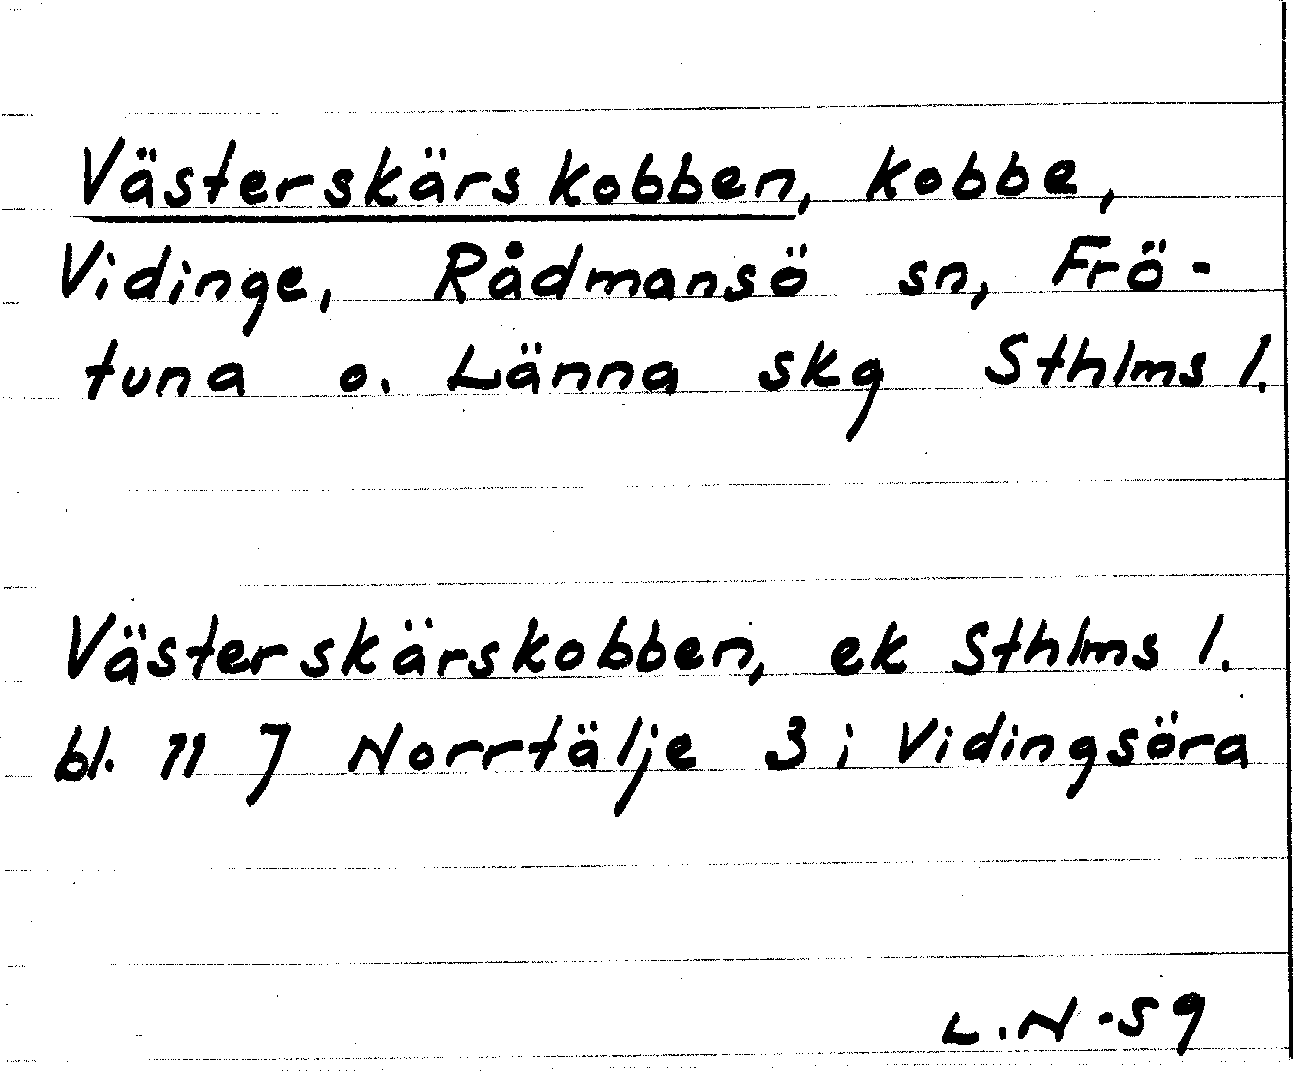 Västerskärskobben, kobbe,
Vidinge, Rådmansö sn, Frö-
tuna o. Länna skg Sthlms l.
Västerskärskobben, ek Sthlms l.
bl. 11 7 Norrtälje 3 i Vidingsöra
L.N -59